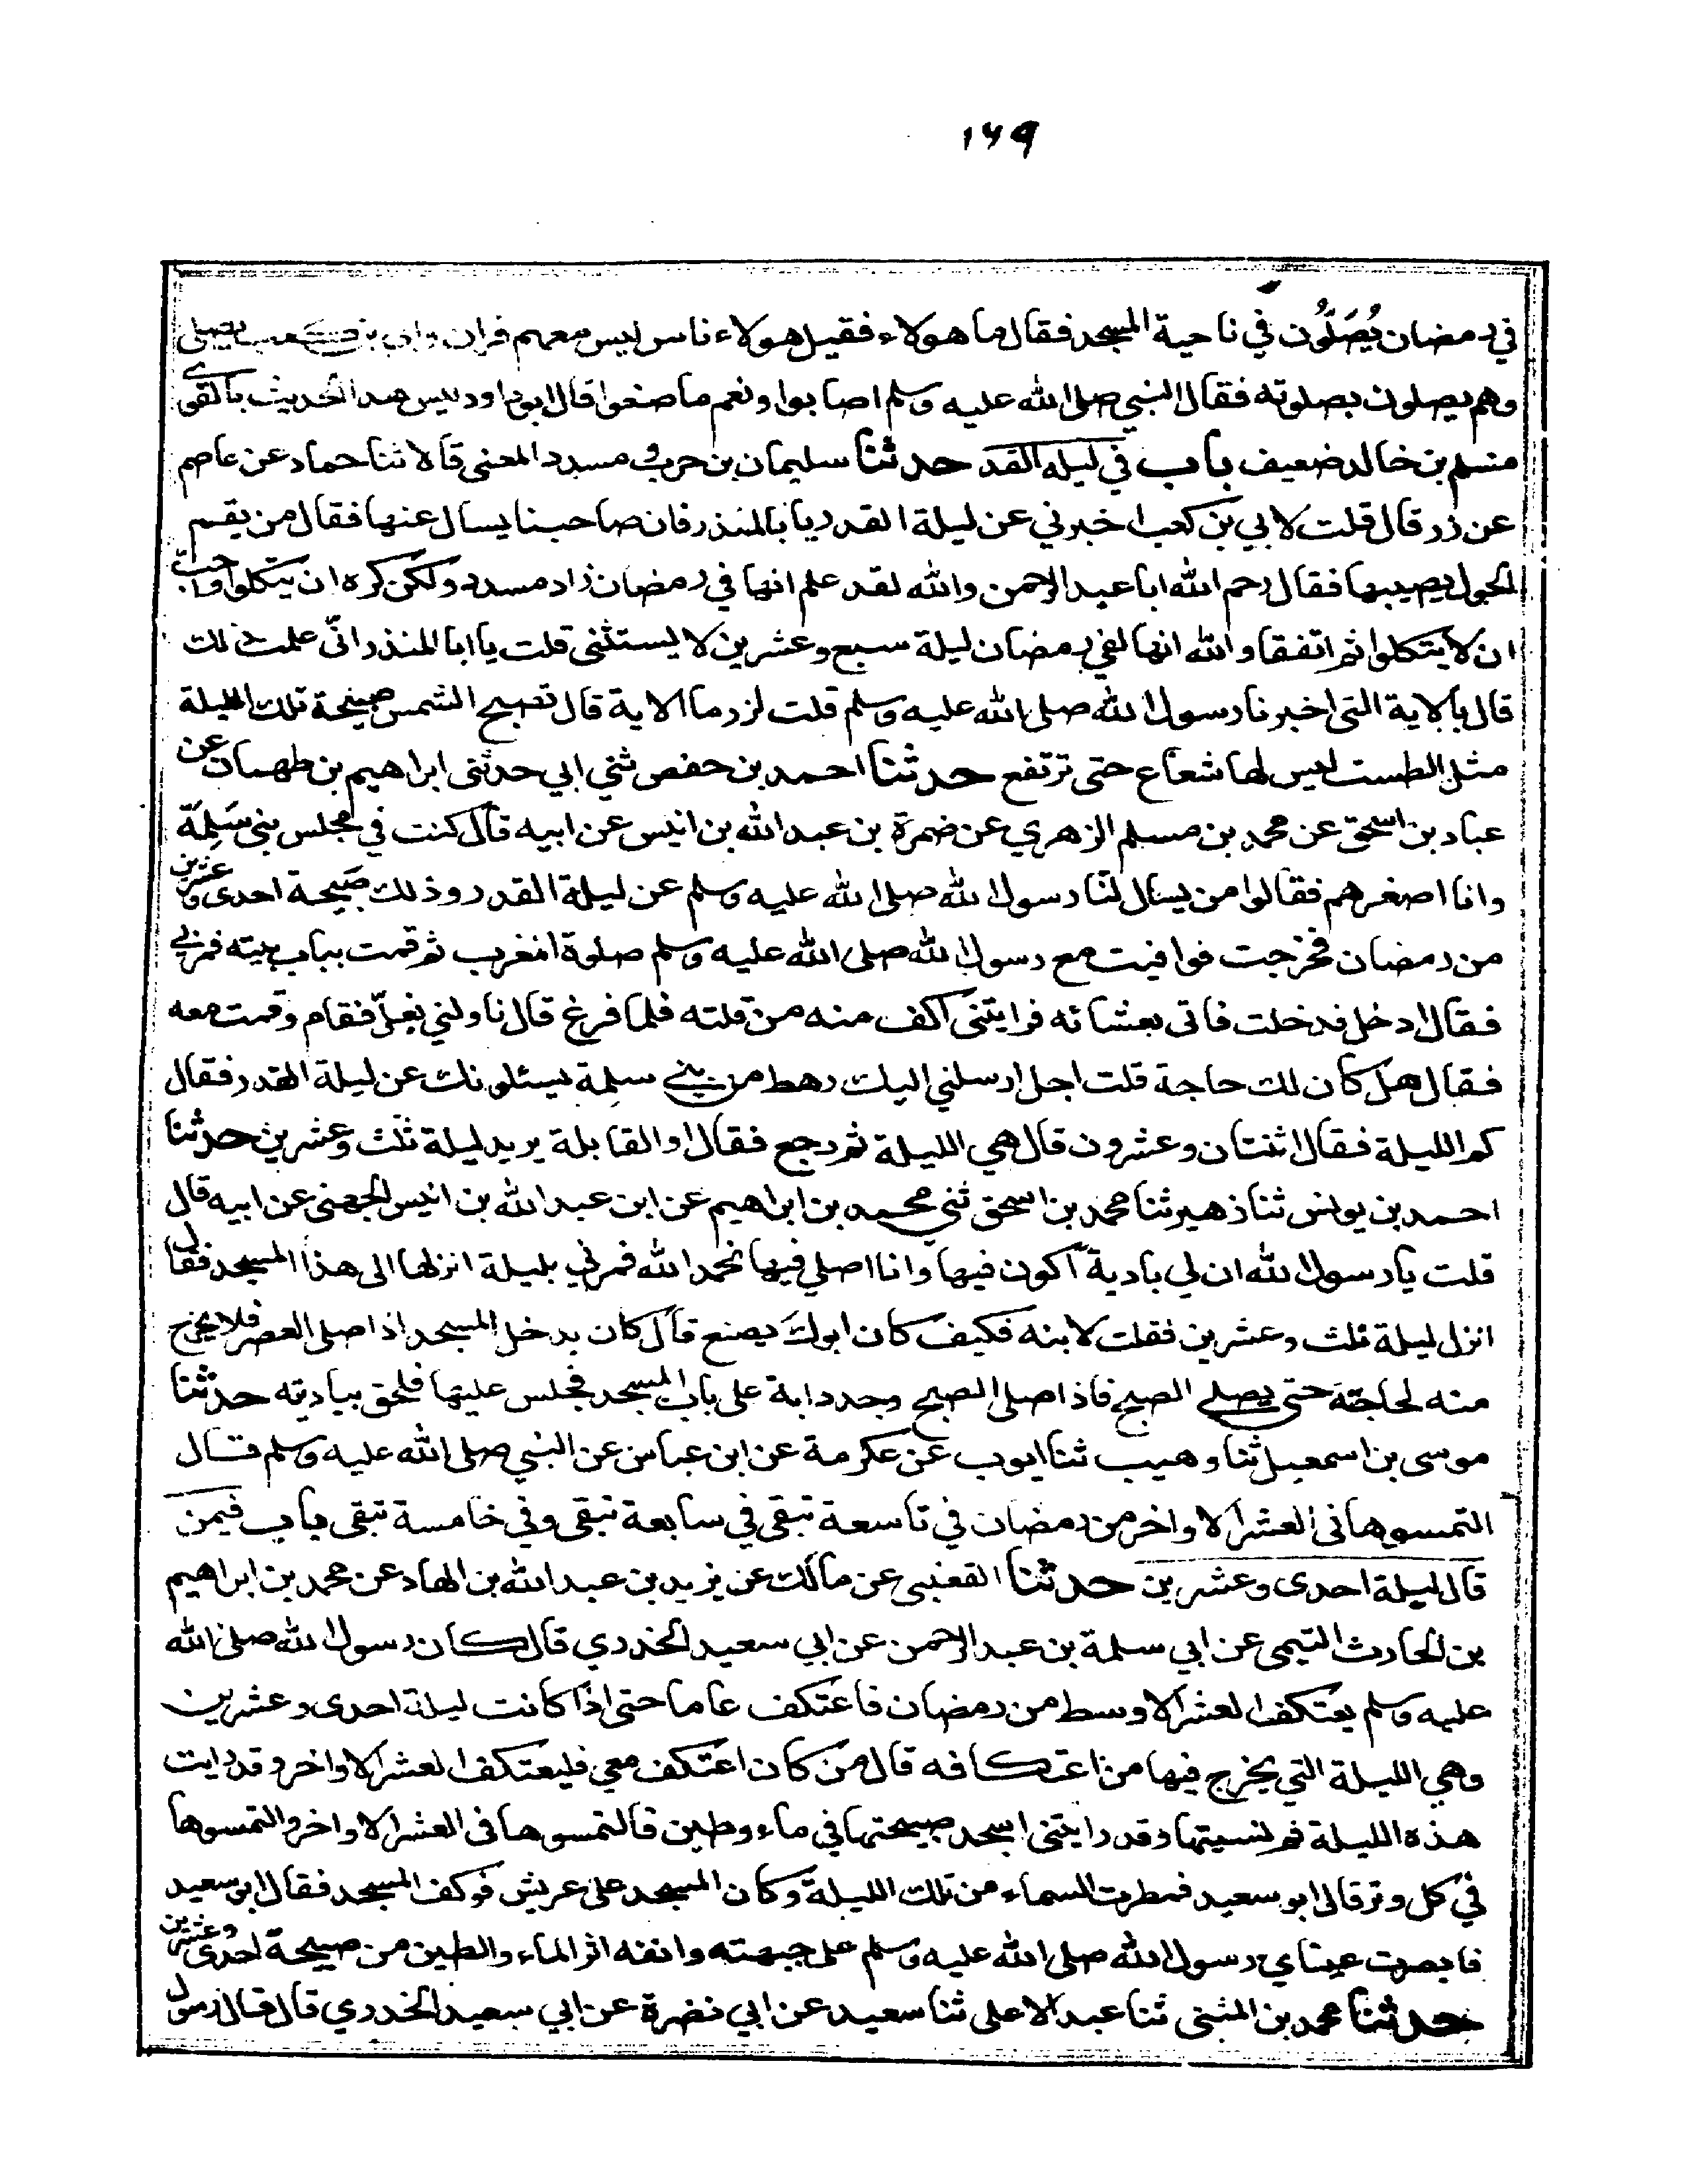 ١٦٩
في رمضان يُصَلُّون في ناحية المسجد فقال ما هولاء فقيل هولاء ناس ليس معهم قران وابي بن كعب يصلي
وهم يصلون بصلوته فقال النبي صلى الله عليه وسلم اصابوا ونعم ما صنعوا قال ابو داود ليس هذا الحديث بالقوى
مسلم بن خالد ضعيف باب في ليلة القدر حدثنا سليمان بن حرب ومسدد المعنى قالا ثنا حماد عن عاصم
عن زر قال قلت لابي بن كعب اخبرني عن ليلة القدر يا با المنذر فان صاحبنا يسال عنها فقال من يقم
الحول يصيبها فقال رحم الله ابا عبد الرحمن والله لقد علم انها في رمضان زاد مسدد ولكن كره ان يتكلوا واحبّ
ان لا يتكلوا ثم اتفقا والله انها لفي رمضان ليلة سبع وعشرين لا يستثنى قلت يا ابا المنذر انّى علمت ذلك
قال بالاية التى اخبرنا رسول الله صلى الله عليه وسلم قلت لزر ما الاية قال تصبح الشمس صبيحة تلك الليلة
مثل الطست ليس لها شعاع حتى ترتفع حدثنا احمد بن حفص ثني ابي حدثنى ابراهيم بن طهمان عن
عباد بن اسحق عن محمد بن مسلم الزهري عن ضمرة بن عبد الله بن انيس عن ابيه قال كنت في مجلس بنى سَلِمَة
وانا اصغرهم فقالوا من يسال لنا رسول الله صلى الله عليه وسلم عن ليلة القدر وذلك صبيحة احدى وعشرين
من رمضان فخرجت فوافيت مع رسول الله صلى الله عليه وسلم صلوة المغرب ثم قمت بباب بيته فمر بي
فقال ادخل فدخلت فاتى بعشائه فرايتنى اكف منه من قلته فلما فرغ قال ناولني نعلى فقام وقمت معه
فقال هل كان لك حاجة قلت اجل ارسلني اليك رهط من بني سلمة يسئلونك عن ليلة القدر فقال
كم الليلة فقال اثنتان وعشرون قال هي الليلة ثم رجع فقال او القابلة يريد ليلة ثلث وعشرين حدثنا
احمد بن يونس ثنا زهير ثنا محمد بن اسحق ثني محمد بن ابراهيم عن ابن عبد الله بن انيس الجهنى عن ابيه قال
قلت يا رسول الله ان لي بادية اكون فيها وانا اصلي فيها بحمد الله فمرني بليلة انزلها الى هذا المسجد فقال
انزل ليلة ثلث وعشرين فقلت لابنه فكيف كان ابوك يصنع قال كان يدخل المسجد اذا صلى العصر فلا يخرج
منه لحاجة حتى يصلي الصبح فاذا صلى الصبح وجد دابة على باب المسجد فجلس عليها فلحق ببادیته حدثنا
موسى بن اسمعيل ثنا وهيب ثنا ايوب عن عكرمة عن ابن عباس عن النبي صلى الله عليه وسلم قال
التمسوها فى العشر الاواخر من رمضان في تاسعة تبقى في سابعة تبقى وفي خامسة تبقى باب فيمن
قال ليلة احدى وعشرين حدثنا القعنبى عن مالك عن يزيد بن عبد الله بن الهاد عن محمد بن ابراهيم
بن الحارث التيمى عن ابي سلمة بن عبد الرحمن عن ابي سعيد الخدري قال كان رسول الله صلى الله
عليه وسلم يعتكف العشر الاوسط من رمضان فاعتكف عاما حتى اذا كانت ليلة احدى وعشرين
وهي الليلة التي يخرج فيها من اعتكافه قال من كان اعتكف معي فليعتكف العشر الاواخر وقد رايت
هذه الليلة ثم نسيتها وقد رايتنى اسجد صبيحتها في ماء وطين فالتمسوها فى العشر الاواخر والتمسوها
في كل وتر قال ابو سعيد فمطرت السماء من تلك الليلة وكان المسجد على عريش فوكف المسجد فقال ابو سعيد
فابصرت عيناي رسول الله صلى الله عليه وسلم على جبهته وانفه اثر الماء والطين من صبيحة احدى وعشرين
حدثنا محمد بن المثنى ثنا عبد الاعلى ثنا سعيد عن ابي نضرة عن ابي سعيد الخدري قال قال رسول